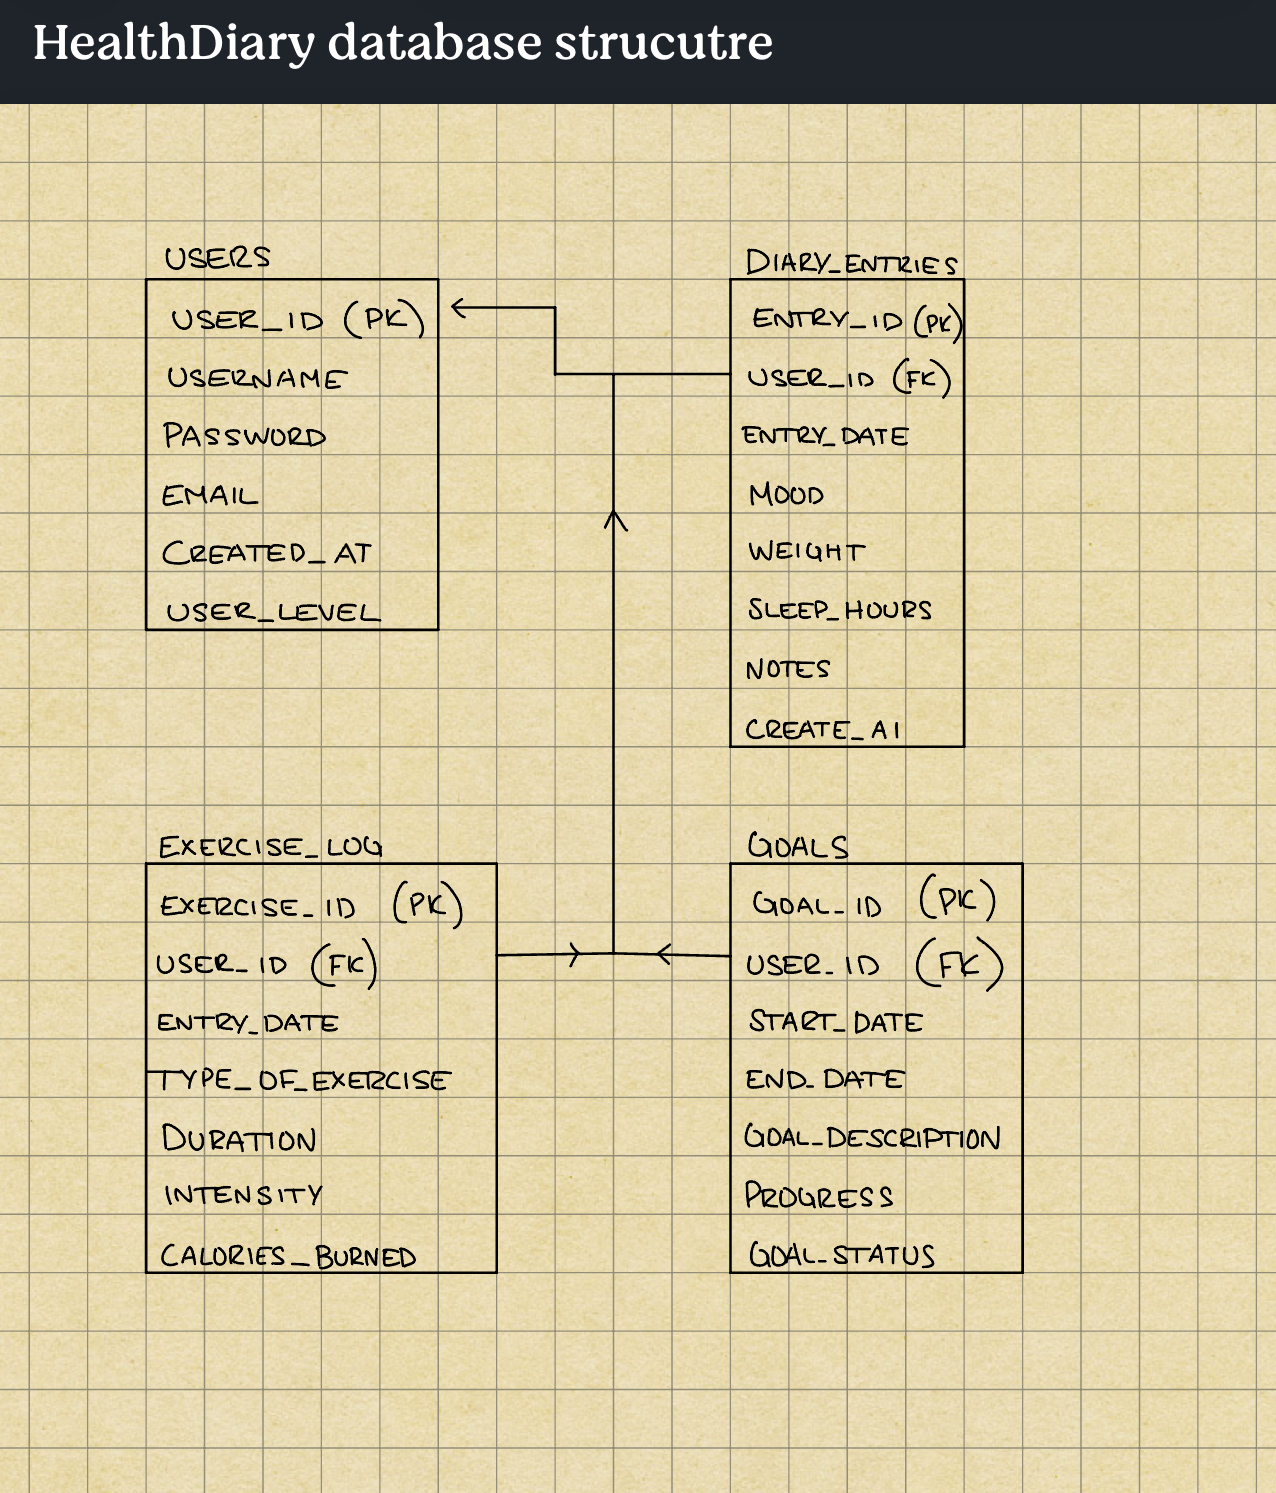 HealthDiary database strucutre
USERS
USER_ID (PK)
USERNAME
PASSWORD
EMAIL
CREATED_AT
USER_LEVEL
DIARY_ENTRIES
ENTRY_ID (PK)
USER_ID (FK)
ENTRY_DATE
MOOD
WEIGHT
SLEEP_HOURS
NOTES
CREATE_AI
EXERCISE_LOG
EXERCISE_ID (PK)
USER_ID (FK)
ENTRY_DATE
TYPE_OF_EXERCISE
DURATION
INTENSITY
CALORIES_BURNED
GOALS
GOAL_ID (PK)
USER_ID (FK)
START_DATE
END_DATE
GOAL_DESCRIPTION
PROGRESS
GOAL_STATUS